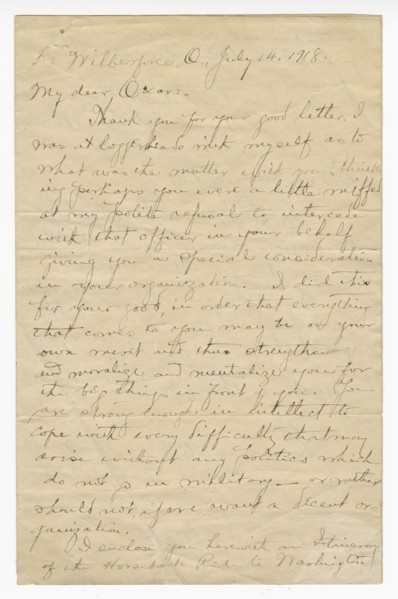 Wilberforce, O., July 14, 1918.
My dear Oscar:-
Thank you for your good letter. I
was at loggerheads with myself as to
what was the matter with you, think-
ing perhaps you were a little miffed
at my polite refusal to intercede
with that officer in your behalf
giving you a special consideration
in your organization. I did this
for your good, in order that everything
that comes to you may be on your
own merit and thus strengthen
and moralize and mentalize you for
the big things in front of you. You
are strong enough in intellect to
cope with every difficulty that may
arise without any politics which
do not go in military — or rather
should not if we want a decent or-
ganization.
I enclose you herewith an Itinerary
of the Horseback Ride to Washington